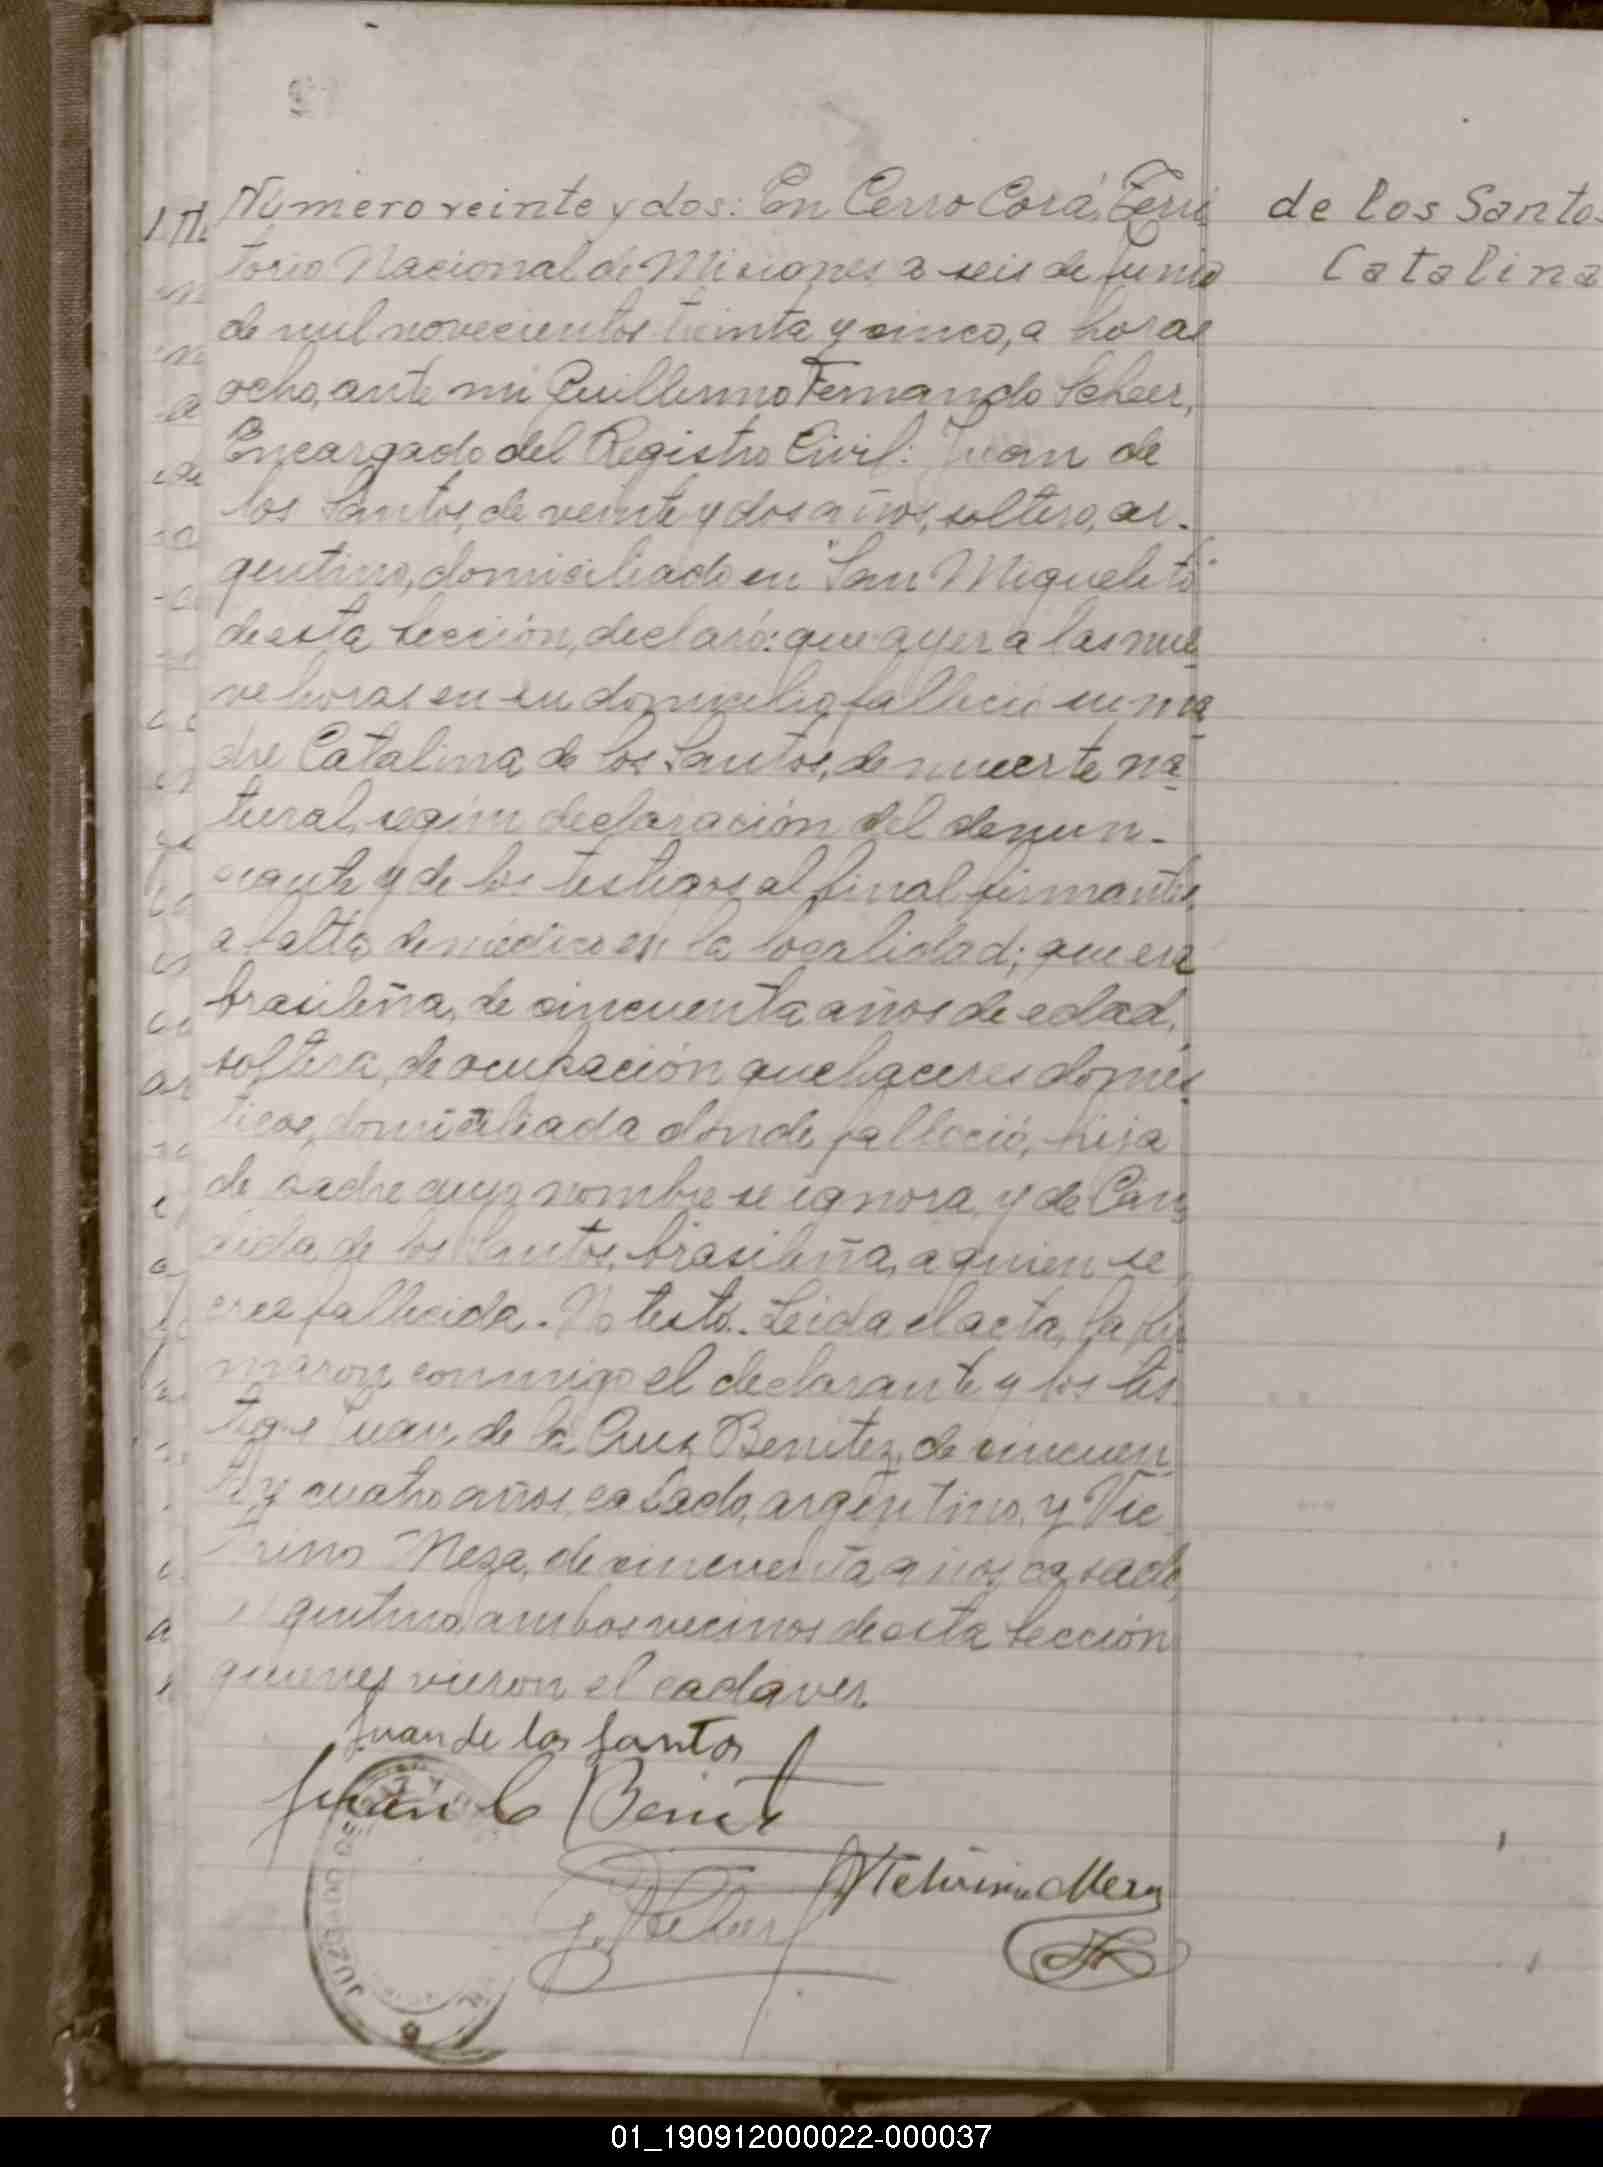 Número veinte y dos: En Cerro Corá, Terri
torio Nacional de Misiones a seis de Junio
de mil novecientos treinta y cinco, a horas
ocho, ante mi Guillermo Fernando Scheer,
Encargado del Registro Civil: Juan de
los Santos, de veinte y dos años, soltero, ar-
gentino, domiciliado en "San Miguelito"
de esta sección, declaró: que ayer a las nue-
ve horas en su domicilio falleció su ma-
dre Catalina de los Santos, de muerte na-
tural, según declaración del denun-
ciante y de los testigos al final firmantes,
a falta de médico en la localidad; que era
brasileña, de cincuenta años de edad,
soltera, de ocupación quehaceres domés
ticos, domiciliada donde falleció, hija
de padre cuyo nombre se ignora, y de Cán
dida de los Santos, brasileña, a quien se
cree fallecida. No testó. Leida el acta, la fir
maron conmigo el declarante y los tes
tigos Juan de la Cruz Benitez, de cincuen
ta y cuatro años, casado, argentino, y Vic
trino Meza, de cincuenta años, casado,
argentino, ambos vecinos de esta sección
quienes vieron el cadaver.
Juan de los Santos
Juan C Benit
Meza
G. Scheer
de los Santos
Catalina
JUZGADO DE PAZ
01_190912000022-000037